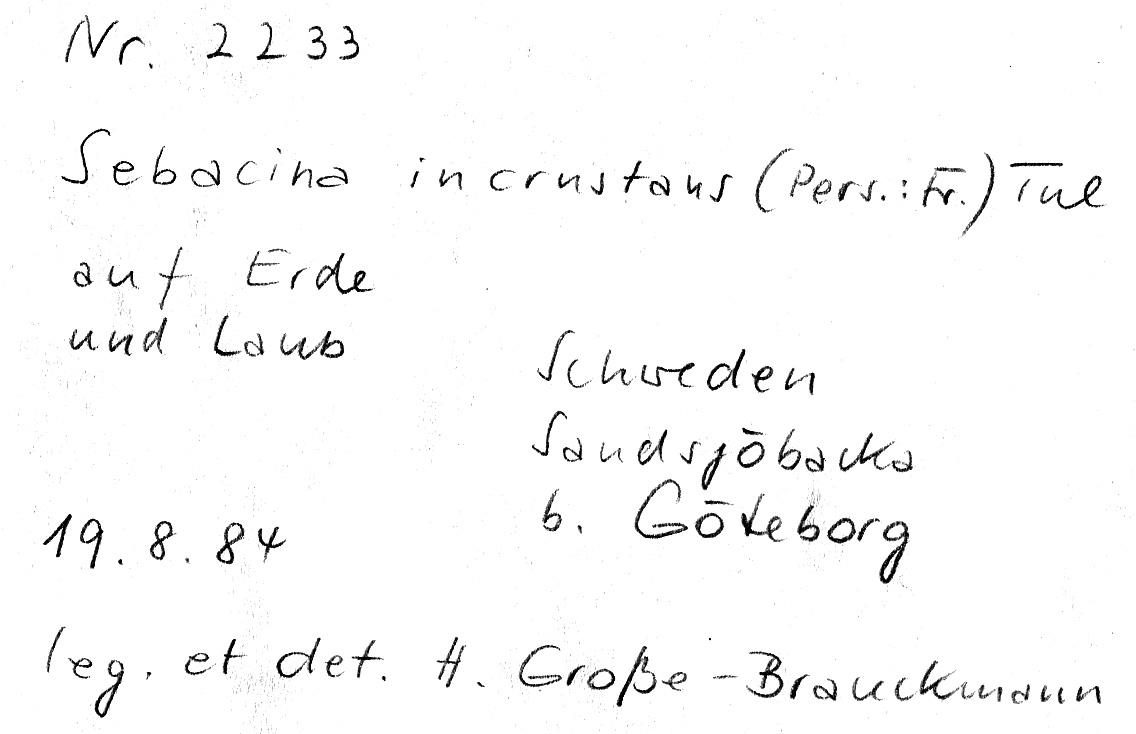 Nr. 2233
Sebacina incrustans (Pers.: Fr.) Tul
auf Erde
und Laub
Schweden
Sandsjöbacka
b. Göteborg
19. 8. 84
leg. et det. H. Große-Brauckmann